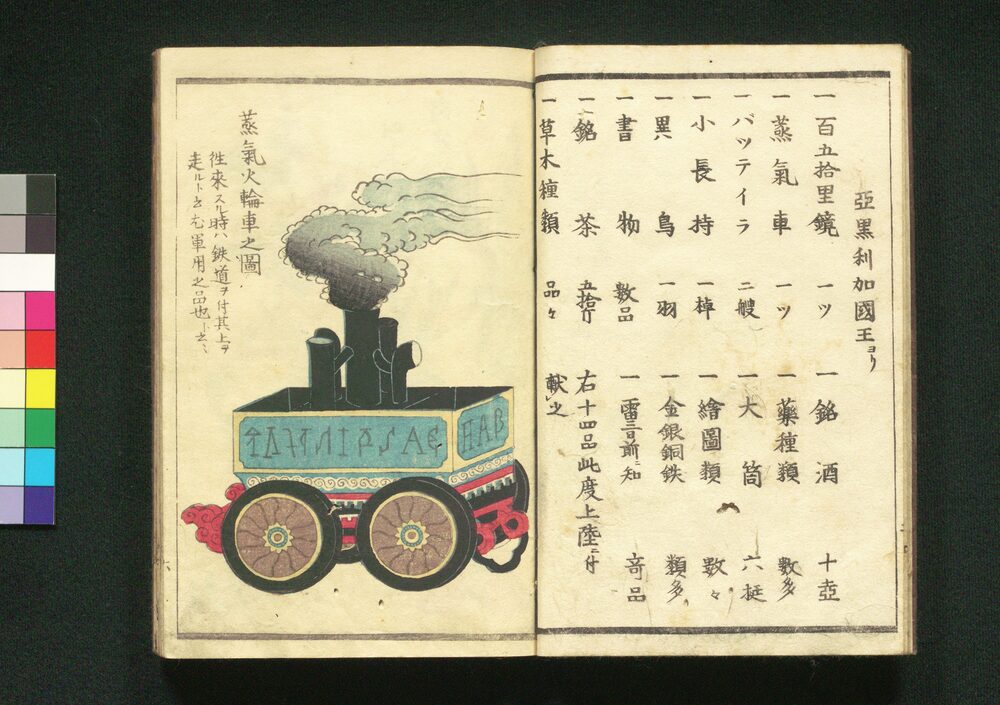 亞黒利加國王ヨリ
一百五拾里鏡 一ツ 一銘酒 十壺
一蒸氣車 一ツ 一藥種類 數多
一バツテイラ 二艘 一大筒 六挺
一小長持 一棹 一繪圖類 數々
一異鳥 一羽 一金銀銅鉄 類多
一書物 數品 一雷三日前ニ知 竒品
一銘茶 五拾斤 右十四品此度上陸ニ付
一草木種類 品々 献之
蒸氣火輪車之圖
徃來スル時ハ鉄道ヲ付其上ヲ
走ルト也軍用之品也ト云々